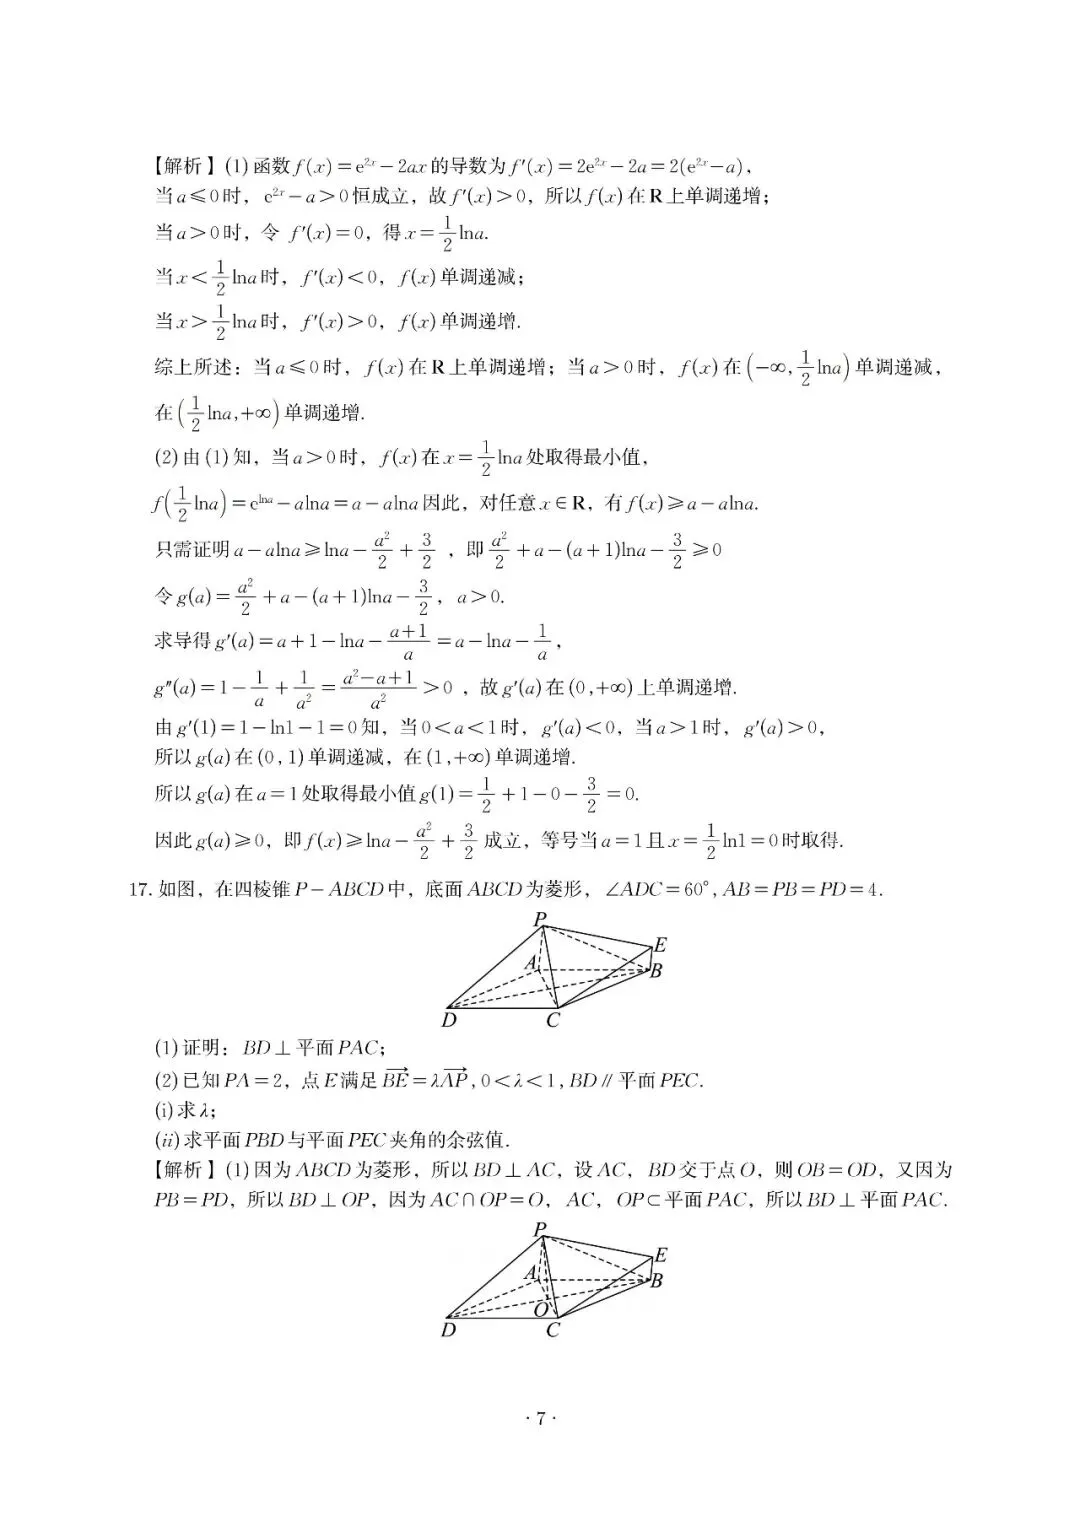 【解析】(1)函数f(x)=e²ˣ-2ax的导数为f′(x)=2e²ˣ-2a=2(e²ˣ-a)，
当a⩽0时，e²ˣ-a>0恒成立，故f′(x)>0，所以f(x)在R上单调递增；
当a>0时，令 f′(x)=0，得x=1/2lna.
当x<1/2lna时，f′(x)<0，f(x)单调递减；
当x>1/2lna时，f′(x)>0，f(x)单调递增.
综上所述：当a⩽0时，f(x)在R上单调递增；当a>0时，f(x)在(-∞,1/2lna)单调递减，
在(1/2lna,+∞)单调递增.
(2)由(1)知，当a>0时，f(x)在x=1/2lna处取得最小值，
f(1/2lna)=e^lna-alna=a-alna因此，对任意x∈R，有f(x)⩾a-alna.
只需证明a-alna⩾lna-a²/2+3/2，即a²/2+a-(a+1)lna-3/2⩾0
令g(a)=a²/2+a-(a+1)lna-3/2，a>0.
求导得g′(a)=a+1-lna-(a+1)/a=a-lna-1/a，
g″(a)=1-1/a+1/a²=(a²-a+1)/a²>0，故g′(a)在(0,+∞)上单调递增.
由g′(1)=1-ln1-1=0知，当0<a<1时，g′(a)<0，当a>1时，g′(a)>0，
所以g(a)在(0,1)单调递减，在(1,+∞)单调递增.
所以g(a)在a=1处取得最小值g(1)=1/2+1-0-3/2=0.
因此g(a)⩾0，即f(x)⩾lna-a²/2+3/2成立，等号当a=1且x=1/2ln1=0时取得.
17.如图，在四棱锥P-ABCD中，底面ABCD为菱形，∠ADC=60°,AB=PB=PD=4.
P
E
A
B
D
C
(1)证明：BD⊥平面PAC；
(2)已知PA=2，点E满足BE→=λAP→,0<λ<1,BD∥平面PEC.
(i)求λ；
(ii)求平面PBD与平面PEC夹角的余弦值.
【解析】(1)因为ABCD为菱形，所以BD⊥AC，设AC，BD交于点O，则OB=OD，又因为
PB=PD，所以BD⊥OP，因为AC∩OP=O，AC，OP⊂平面PAC，所以BD⊥平面PAC.
P
E
A
B
O
D
C
·7·